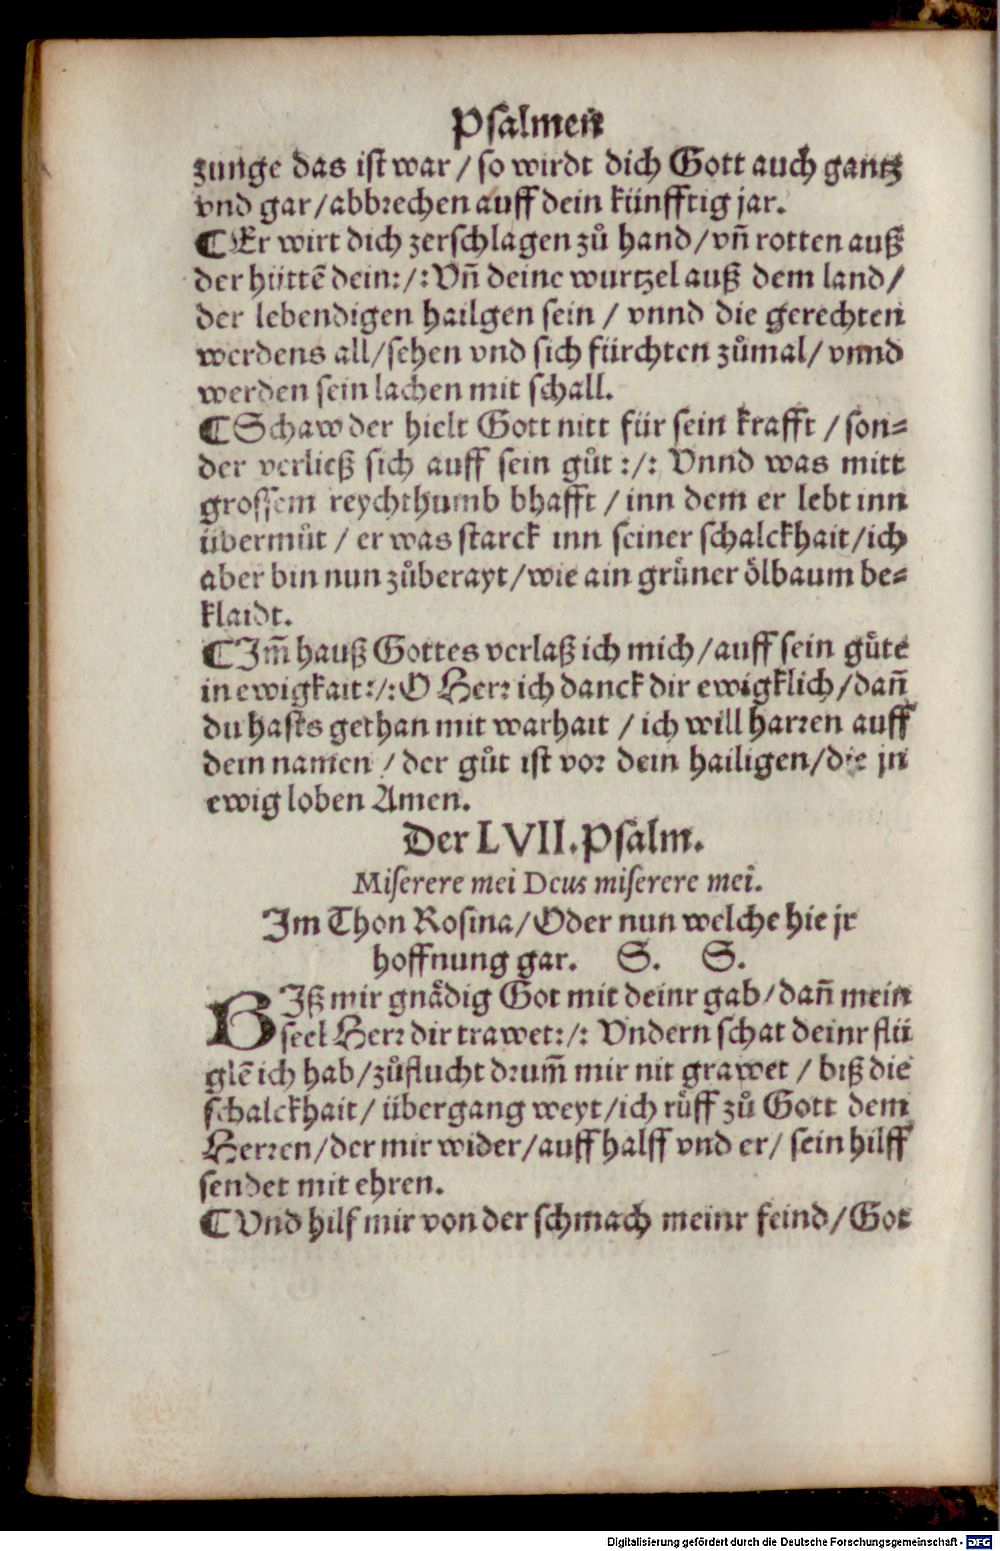 Psalmen
zunge das ist war / so wirdt dich Gott auch gantz
vnd gar / abbrechen auff dein künfftig jar.
¶ Er wirt dich zerschlagen zů hand / vñ rotten auß
der hüttē dein :/: Vñ deine wurtzel auß dem land /
der lebendigen hailgen sein / vnnd die gerechten
werdens all / sehen vnd sich fürchten zůmal / vnnd
werden sein lachen mit schall.
¶ Schaw der hielt Gott nitt für sein krafft / son=
der verließ sich auff sein gůt :/: Vnnd was mitt
grossem reychthumb bhafft / inn dem er lebt inn
übermůt / er was starck inn seiner schalckhait / ich
aber bin nun zůberayt / wie ain grüner ölbaum be=
klaidt.
¶ Im̃ hauß Gottes verlaß ich mich / auff sein gůte
in ewigkait :/: O Herr ich danck dir ewigklich / dañ
du hasts gethan mit warhait / ich will harren auff
dein namen / der gůt ist vor dein hailigen / die jn
ewig loben Amen.
Der LVII. Psalm.
Miserere mei Deus miserere mei.
Im Thon Rosina / Oder nun welche hie jr
hoffnung gar. S. S.
BIß mir gnädig Got mit deinr gab / dañ mein
seel Herr dir trawet :/: Vndern schat deinr flü
glē ich hab / zůflucht drum̃ mir nit grawet / biß die
schalckhait / übergang weyt / ich růff zů Gott dem
Herren / der mir wider / auff halff vnd er / sein hilff
sendet mit ehren.
¶ Vnd hilf mir von der schmach meinr feind / Got
Digitalisierung gefördert durch die Deutsche Forschungsgemeinschaft - DFG